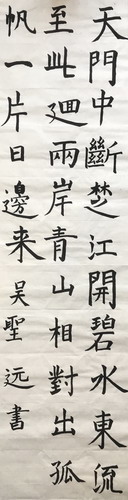 天門中斷楚江開碧水東流
至此廻兩岸青山相對出孤
帆一片日邊来吴聖远書